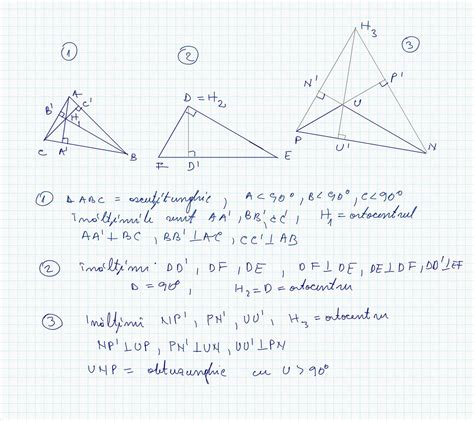 1
2
3
A
B'
C'
H1
C
A'
B
D = H2
F
D'
E
H3
N'
P'
U
P
U'
N
1 Δ ABC = ascuțitunghic, A < 90°, B < 90°, C < 90°
înălțimile sunt AA', BB', CC', H1 = ortocentrul
AA' ⊥ BC, BB' ⊥ AC, CC' ⊥ AB
2 înălțimi DD', DF, DE, DF ⊥ DE, DE ⊥ DF, DD' ⊥ EF
D = 90°, H2 = D = ortocentru
3 înălțimi NP', PN', UU', H3 = ortocentru
NP' ⊥ UP, PN' ⊥ UN, UU' ⊥ PN
UNP = obtuzunghic cu U > 90°